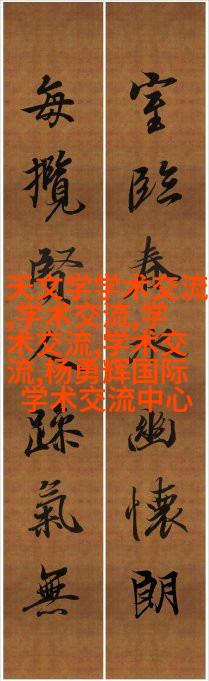 室臨春水幽懷朗
每攬賢人躁氣無
天文学学术交流
,学术交流,学
术交流,学术交
流,杨勇辉国际
学术交流中心